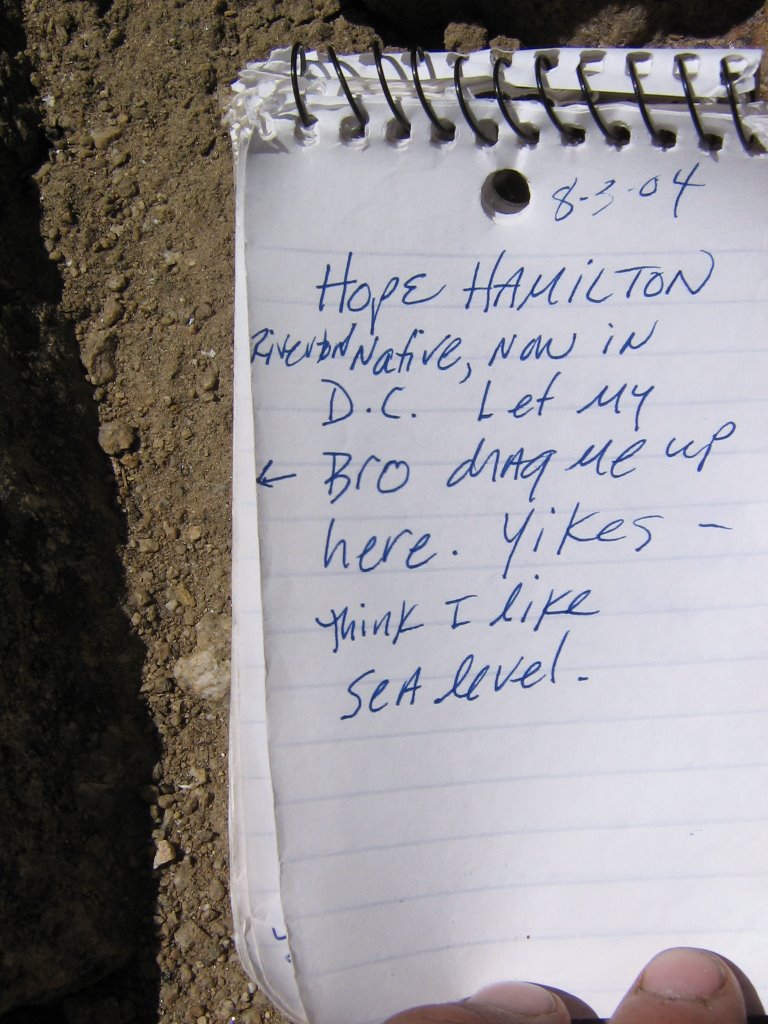 8-3-04
Hope HAMILTON
Riverton Native, Now in
D.C. Let my
← Bro drag me up
here. Yikes –
think I like
SeA level.